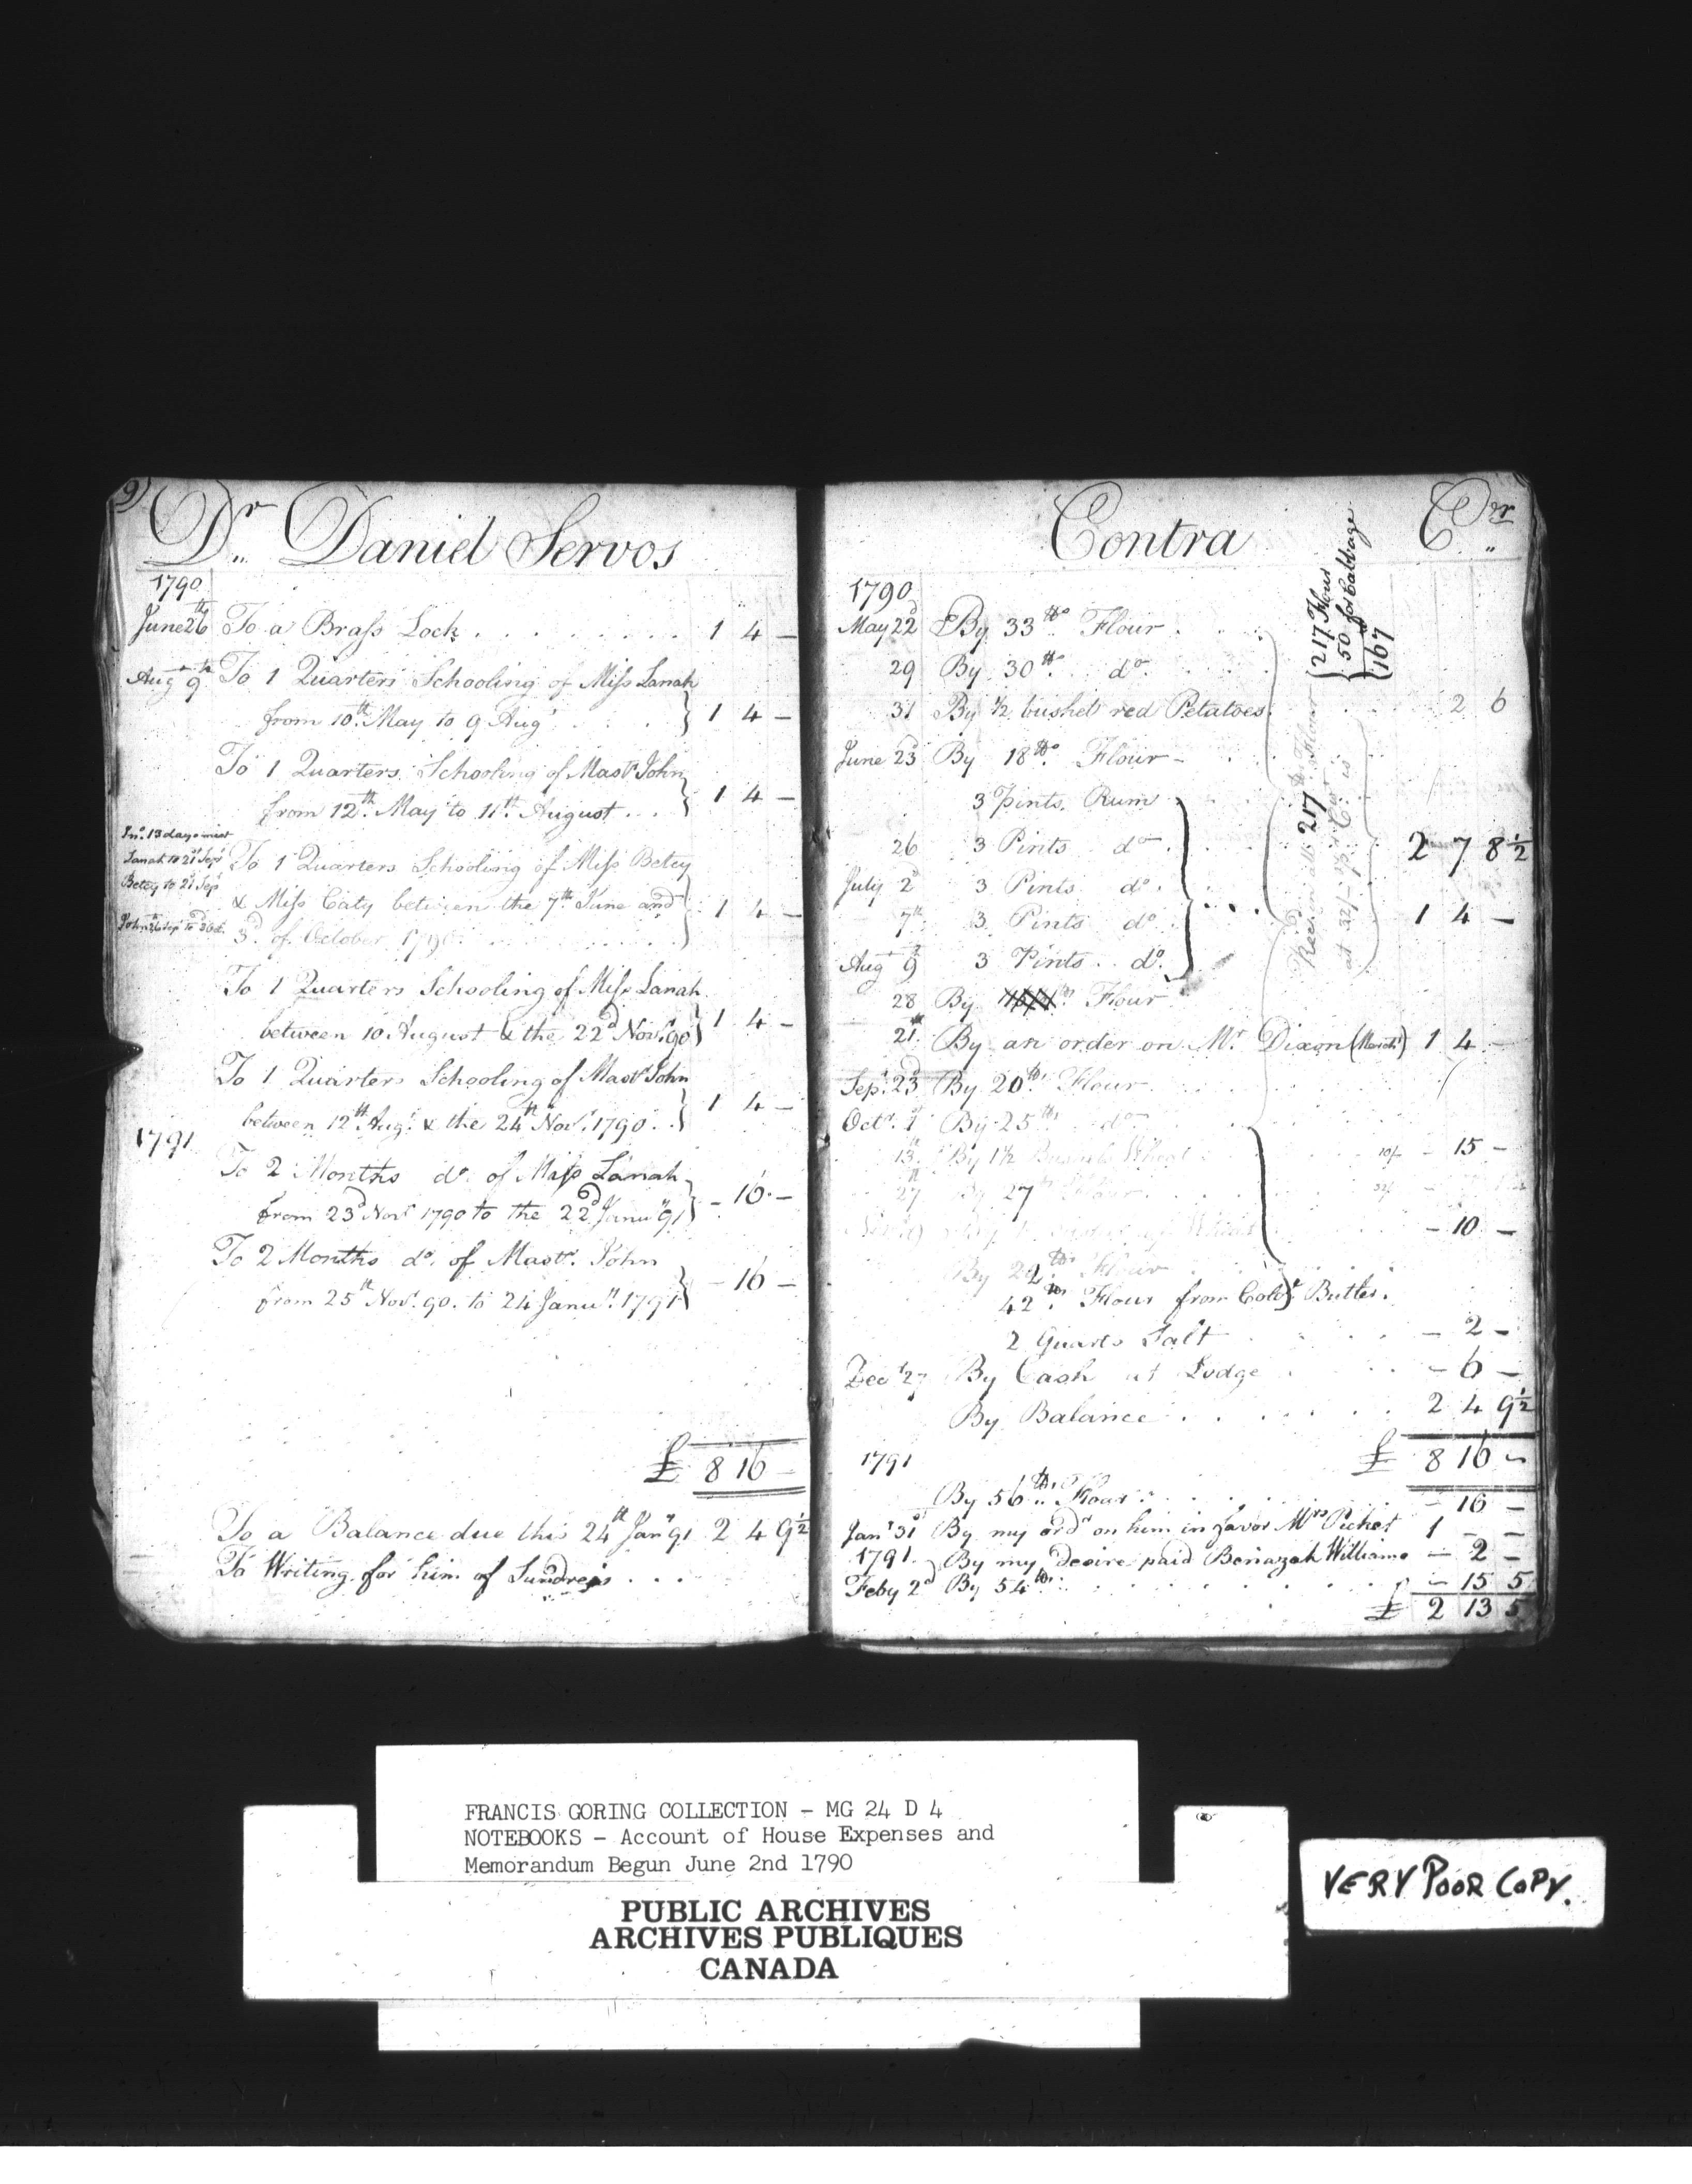 9)
Dr Daniel Servos
1790
June 26th To a Brass Lock . . . . . . . . 1 4 –
Augt 9th To 1 Quarters Schooling of Miss Lanah
from 10th May to 9 Augt . . . . } 1 4 –
To 1 Quarters Schooling of Mastr John
from 12th May to 11th August . . . } 1 4 –
Jno. 13 days mist
Lanah to 21st Sept
Betcy to 21 Sept
To 1 Quarters Schooling of Miss Betcy
& Miss Caty between the 7th June and
3d of October 1790 . . . . . . . . } 1 4 –
To 1 Quarters Schooling of Miss Lanah
between 10 August & the 22d Novr. 90 } 1 4 –
To 1 Quarters Schooling of Mastr John
between 12th Augt. & the 24th Novr. 1790 . . } 1 4 –
1791
To 2 Months do. of Miss Lanah
from 23d Novr 1790 to the 22d Janury 91 } – 16 –
To 2 Months do. of Mastr. John
from 25th Novr. 90. to 24 Janury. 1791 } – 16 –
£ 8 16 –
To a Balance due this 24th Jany 91 2 4 9½
To Writing for him of Sundreys . . .
Contra Cr
217 Flour
50 for Cabbage
167
1790
May 22d By 33 lbs. Flour . . .
29 By 30 lbs. do
31 By ½ bushel red Petatoes . . . . 2 6
June 23d By 18 lbs. Flour
3 Pints. Rum
26 3 Pints do
July 2d 3 Pints do.
7th 3 Pints do
Augt 9th 3 Pints . . do.
Receiv'd in all 217 lbs Flour
at 32/– pr Ct. is
2 7 8½
1 4 –
28 By Flour
21st By an order on Mr Dixon (Mercht) 1 4 –
Sepr. 23d By 20 lbs. Flour
Octr. 1st By 25 lbs do
13th By 1½ Bushels Wheat 10/– – 15 –
27th By 27 lbs Flour
Wheat – 10 –
By 22 lbs Flour
42 lbs. Flour from Colo. Butler.
2 Quarts Salt – 2 –
Decr 27 By Cash at Lodge – 6 –
By Balance . . . . . . 2 4 9½
£ 8 16 –
1791
By 56 lbs. Flour . . . . – 16 –
Jany 31st By my ordr on him in favor Mrs Picket 1 – –
1791 } By my desire paid Benazah Williams – 2 –
Feby 2d By 54 lbs . . . . . . – 15 5
£ 2 13 5
FRANCIS GORING COLLECTION - MG 24 D 4
NOTEBOOKS - Account of House Expenses and
Memorandum Begun June 2nd 1790
PUBLIC ARCHIVES
ARCHIVES PUBLIQUES
CANADA
VERY POOR COPY.